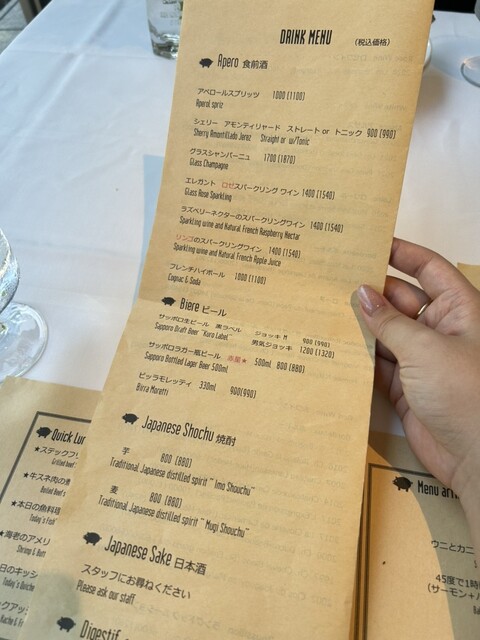 DRINK MENU (税込価格)
Apero 食前酒
アペロールスプリッツ 1000 (1100)
Aperol spriz
シェリー アモンティリャード ストレート or トニック 900 (990)
Sherry Amontillado Jerez Straight or w/Tonic
グラスシャンパーニュ 1700 (1870)
Glass Champagne
エレガント ロゼスパークリング ワイン 1400 (1540)
Glass Rose Sparkling
ラズベリーネクターのスパークリングワイン 1400 (1540)
Sparkling wine and Natural French Raspberry Nectar
リンゴのスパークリングワイン 1400 (1540)
Sparkling wine and Natural French Apple Juice
フレンチハイボール 1000 (1100)
Cognac & Soda
Biere ビール
サッポロ生ビール 黒ラベル ジョッキ!! 900 (990)
Sapporo Draft Beer "Kuro Label" 男気ジョッキ 1200 (1320)
サッポロラガー瓶ビール 赤星★ 500ml 800 (880)
Sapporo Bottled Lager Beer 500ml
ビッラモレッティ 330ml 900(990)
Birra Moretti
Japanese Shochu 焼酎
芋 800 (880)
Traditional Japanese distilled spirit " Imo Shouchu"
麦 800 (880)
Traditional Japanese distilled spirit " Mugi Shouchu"
Japanese Sake 日本酒
スタッフにお尋ねください
Please ask our staff
Digestif
Quick Lun
★ステックフリ
Grilled beef
★牛スネ肉の
Boiled Beef
★本日の魚料理
Today's Fish
★海老のアメリ
Shrimp & Butt
日のキッシ
Today's Quiche
クアッ
Nacho & Fr
Menu
ウニとカニ
45度で1時
(サーモン+